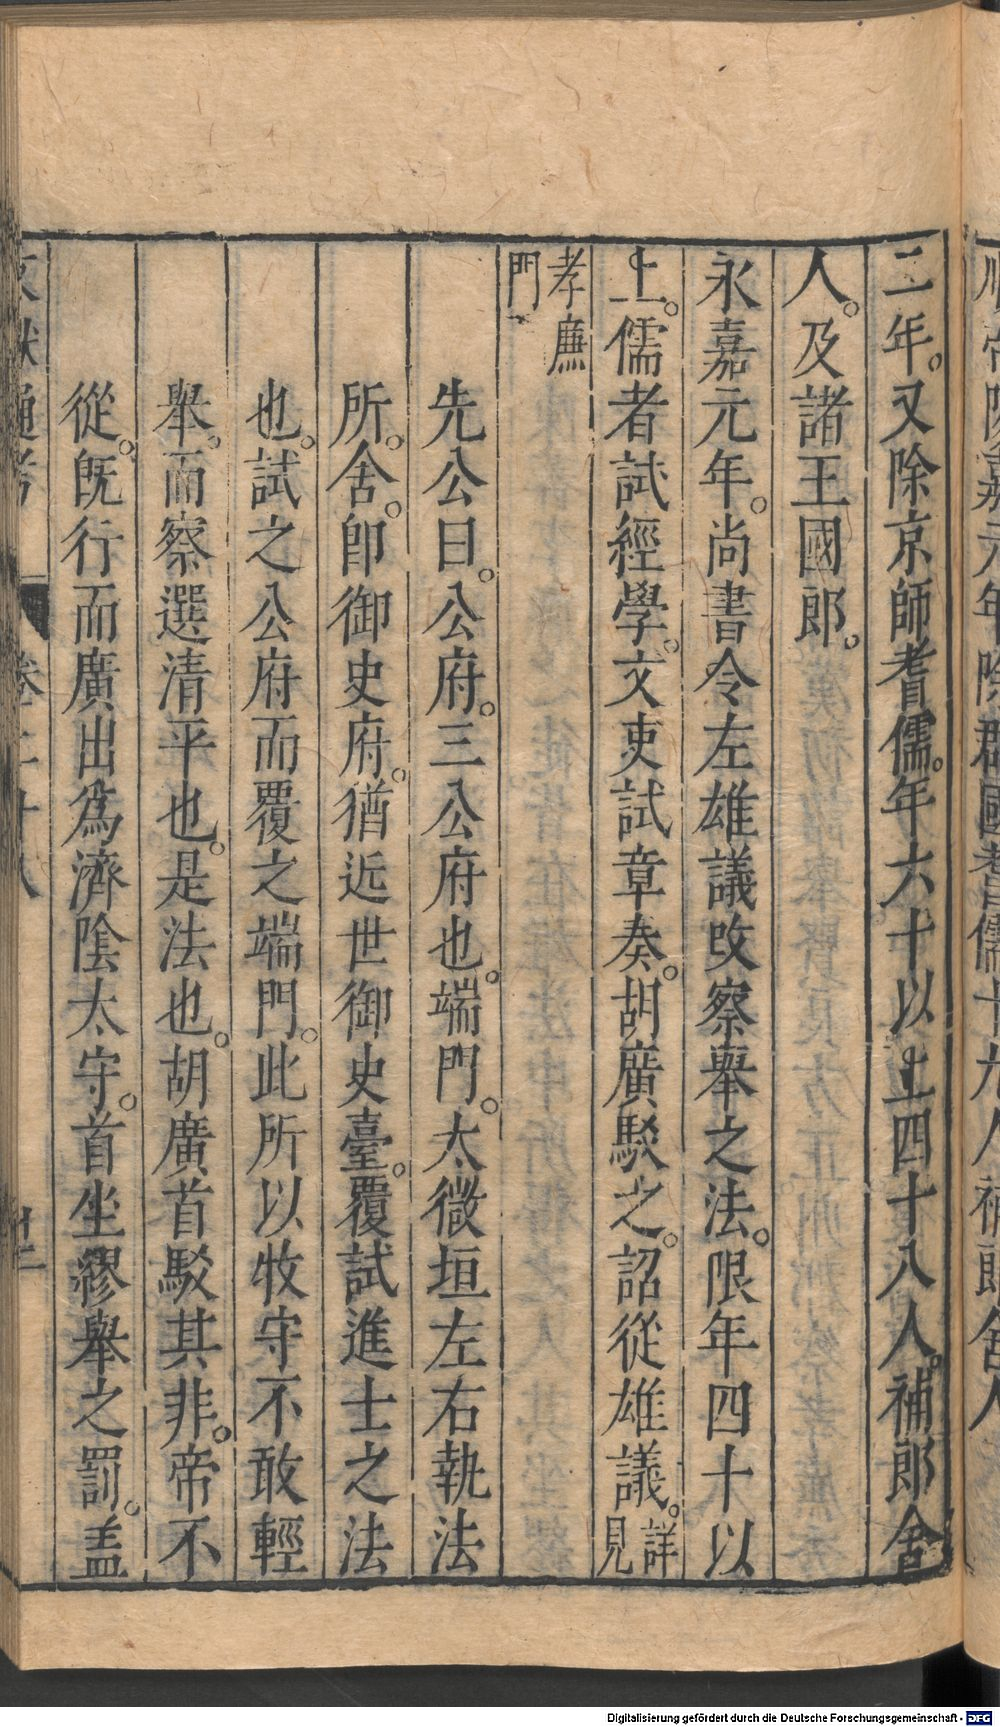 二年。又除京師耆儒。年六十以上四十八人。補郎舍
人。及諸王國郎。
永嘉元年。尚書令左雄議攺察舉之法。限年四十以
上。儒者試經學。文吏試章奏。胡廣駁之。詔從雄議。詳見
孝廉門
先公曰。公府。三公府也。端門。太微垣左右執法
所。舍。卽御史府。猶近世御史臺。覆試進士之法
也。試之公府而覆之端門。此所以牧守不敢輕
舉。而察選清平也。是法也。胡廣首駁其非。帝不
從。旣行而廣出爲濟陰太守。首坐繆舉之罰。盖
文獻通考 卷二十八
Digitalisierung gefördert durch die Deutsche Forschungsgemeinschaft - DFG